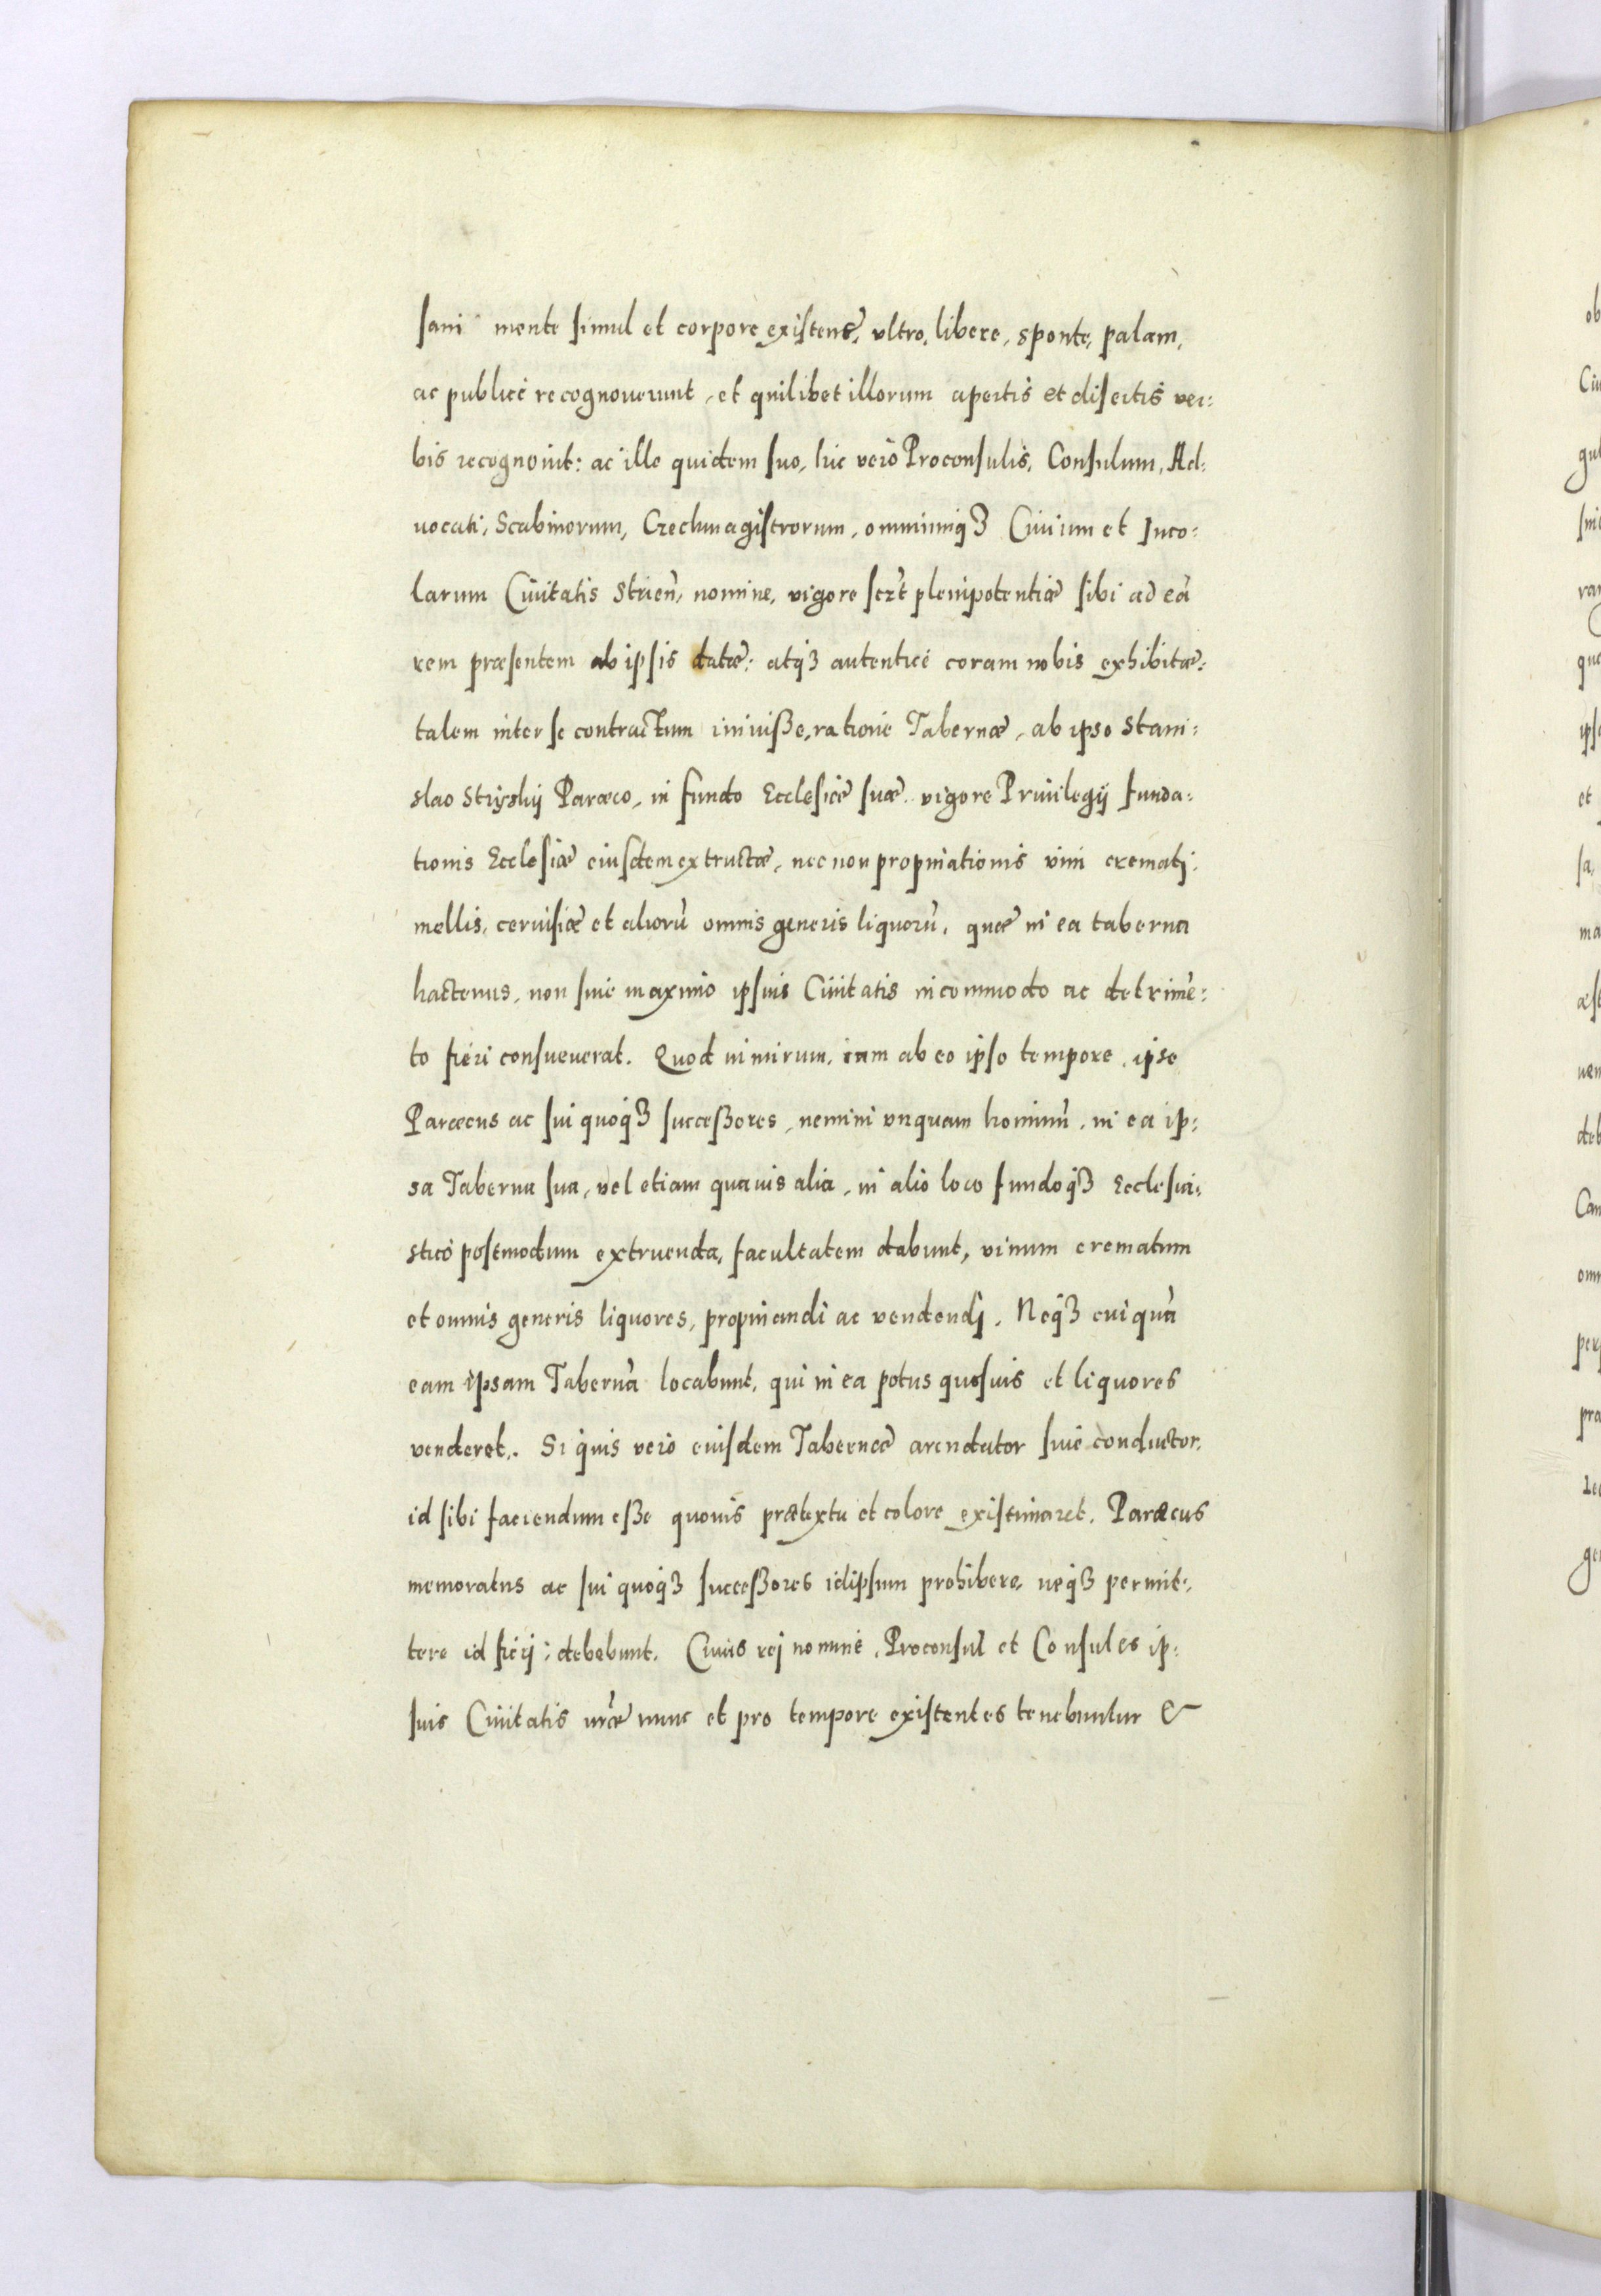 sani mente simul et corpore existens, vltro, libere, sponte, palam,
ac publicè recognouerunt, et quilibet illorum apertis et disertis ver:
bis recognouit: ac ille quidem suo, hic verò Proconsulis, Consulum, Ad:
uocati, Scabinorum, Czechmagistrorum, omniumqꝫ Ciuium et Inco:
larum Ciuitatis Strien̄, nomine, vigore plenipotentiæ sibi ad eā
rem præsentem ab ipsis datæ: atqꝫ autenticè coram nobis exhibitæ:
talem inter se contractum iniuisse, ratione Tabernæ, ab ipso Stani:
slao Stryskij Paræco, in fundo Ecclesiæ suæ vigore Priuilegij funda:
tionis Ecclesiæ eiusdem extructæ, nec non propinationis vini cremati,
mellis, ceruisiæ et aliorū omnis generis liquorū, quæ in ea taberna
hactenus, non sine maximo ipsius Ciuitatis incommodo ac detrimē:
to fieri consueuerat. Quod nimirum, iam ab eo ipso tempore, ipse
Paræcus ac sui quoqꝫ successores, nemini vnquam hominū, in ea ip:
sa Taberna sua, vel etiam quauis alia, in alio loco fundoqꝫ Ecclesia:
stico postmodum extruenda, facultatem dabunt, vinum crematum
et omnis generis liquores, propinandi ac vendendj. Neqꝫ cuiquā
eam ipsam Tabernā locabunt, qui in ea potus quosuis et liquores
venderet. Si quis verò eiusdem Tabernæ arendator siue conductor,
id sibi faciendum esse quouis prætextu et colore existimaret, Paræcus
memoratus ac sui quoqꝫ successores idipsum prohibere, neqꝫ permit:
tere id fierj; debebunt. Cuius rej nomine, Proconsul et Consules ip:
sius Ciuitatis nr̄æ nunc et pro tempore existentes tenebuntur &